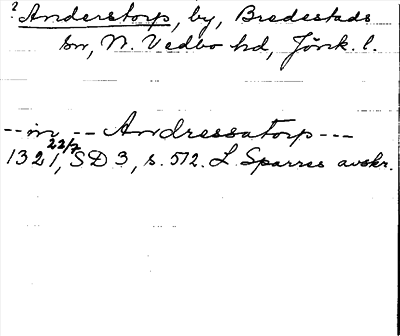 ? Anderstorp, by, Bredestads
sn, N. Vedbo hd, Jönk. l.
--in -- Andressatorp ---
1321 22/7, SD 3, s. 572. L Sparres avskr.